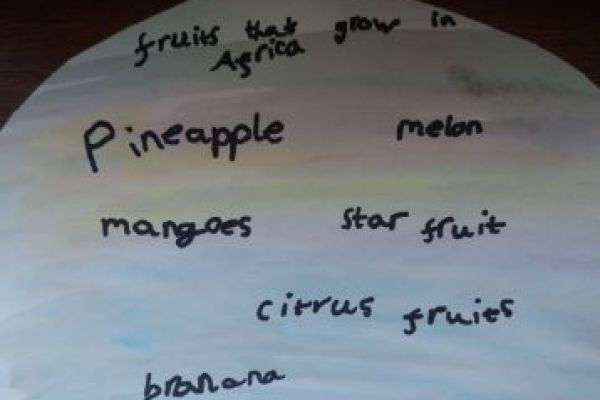 fruits that grow in
Africa
Pineapple melon
mangoes star fruit
citrus fruits
branana